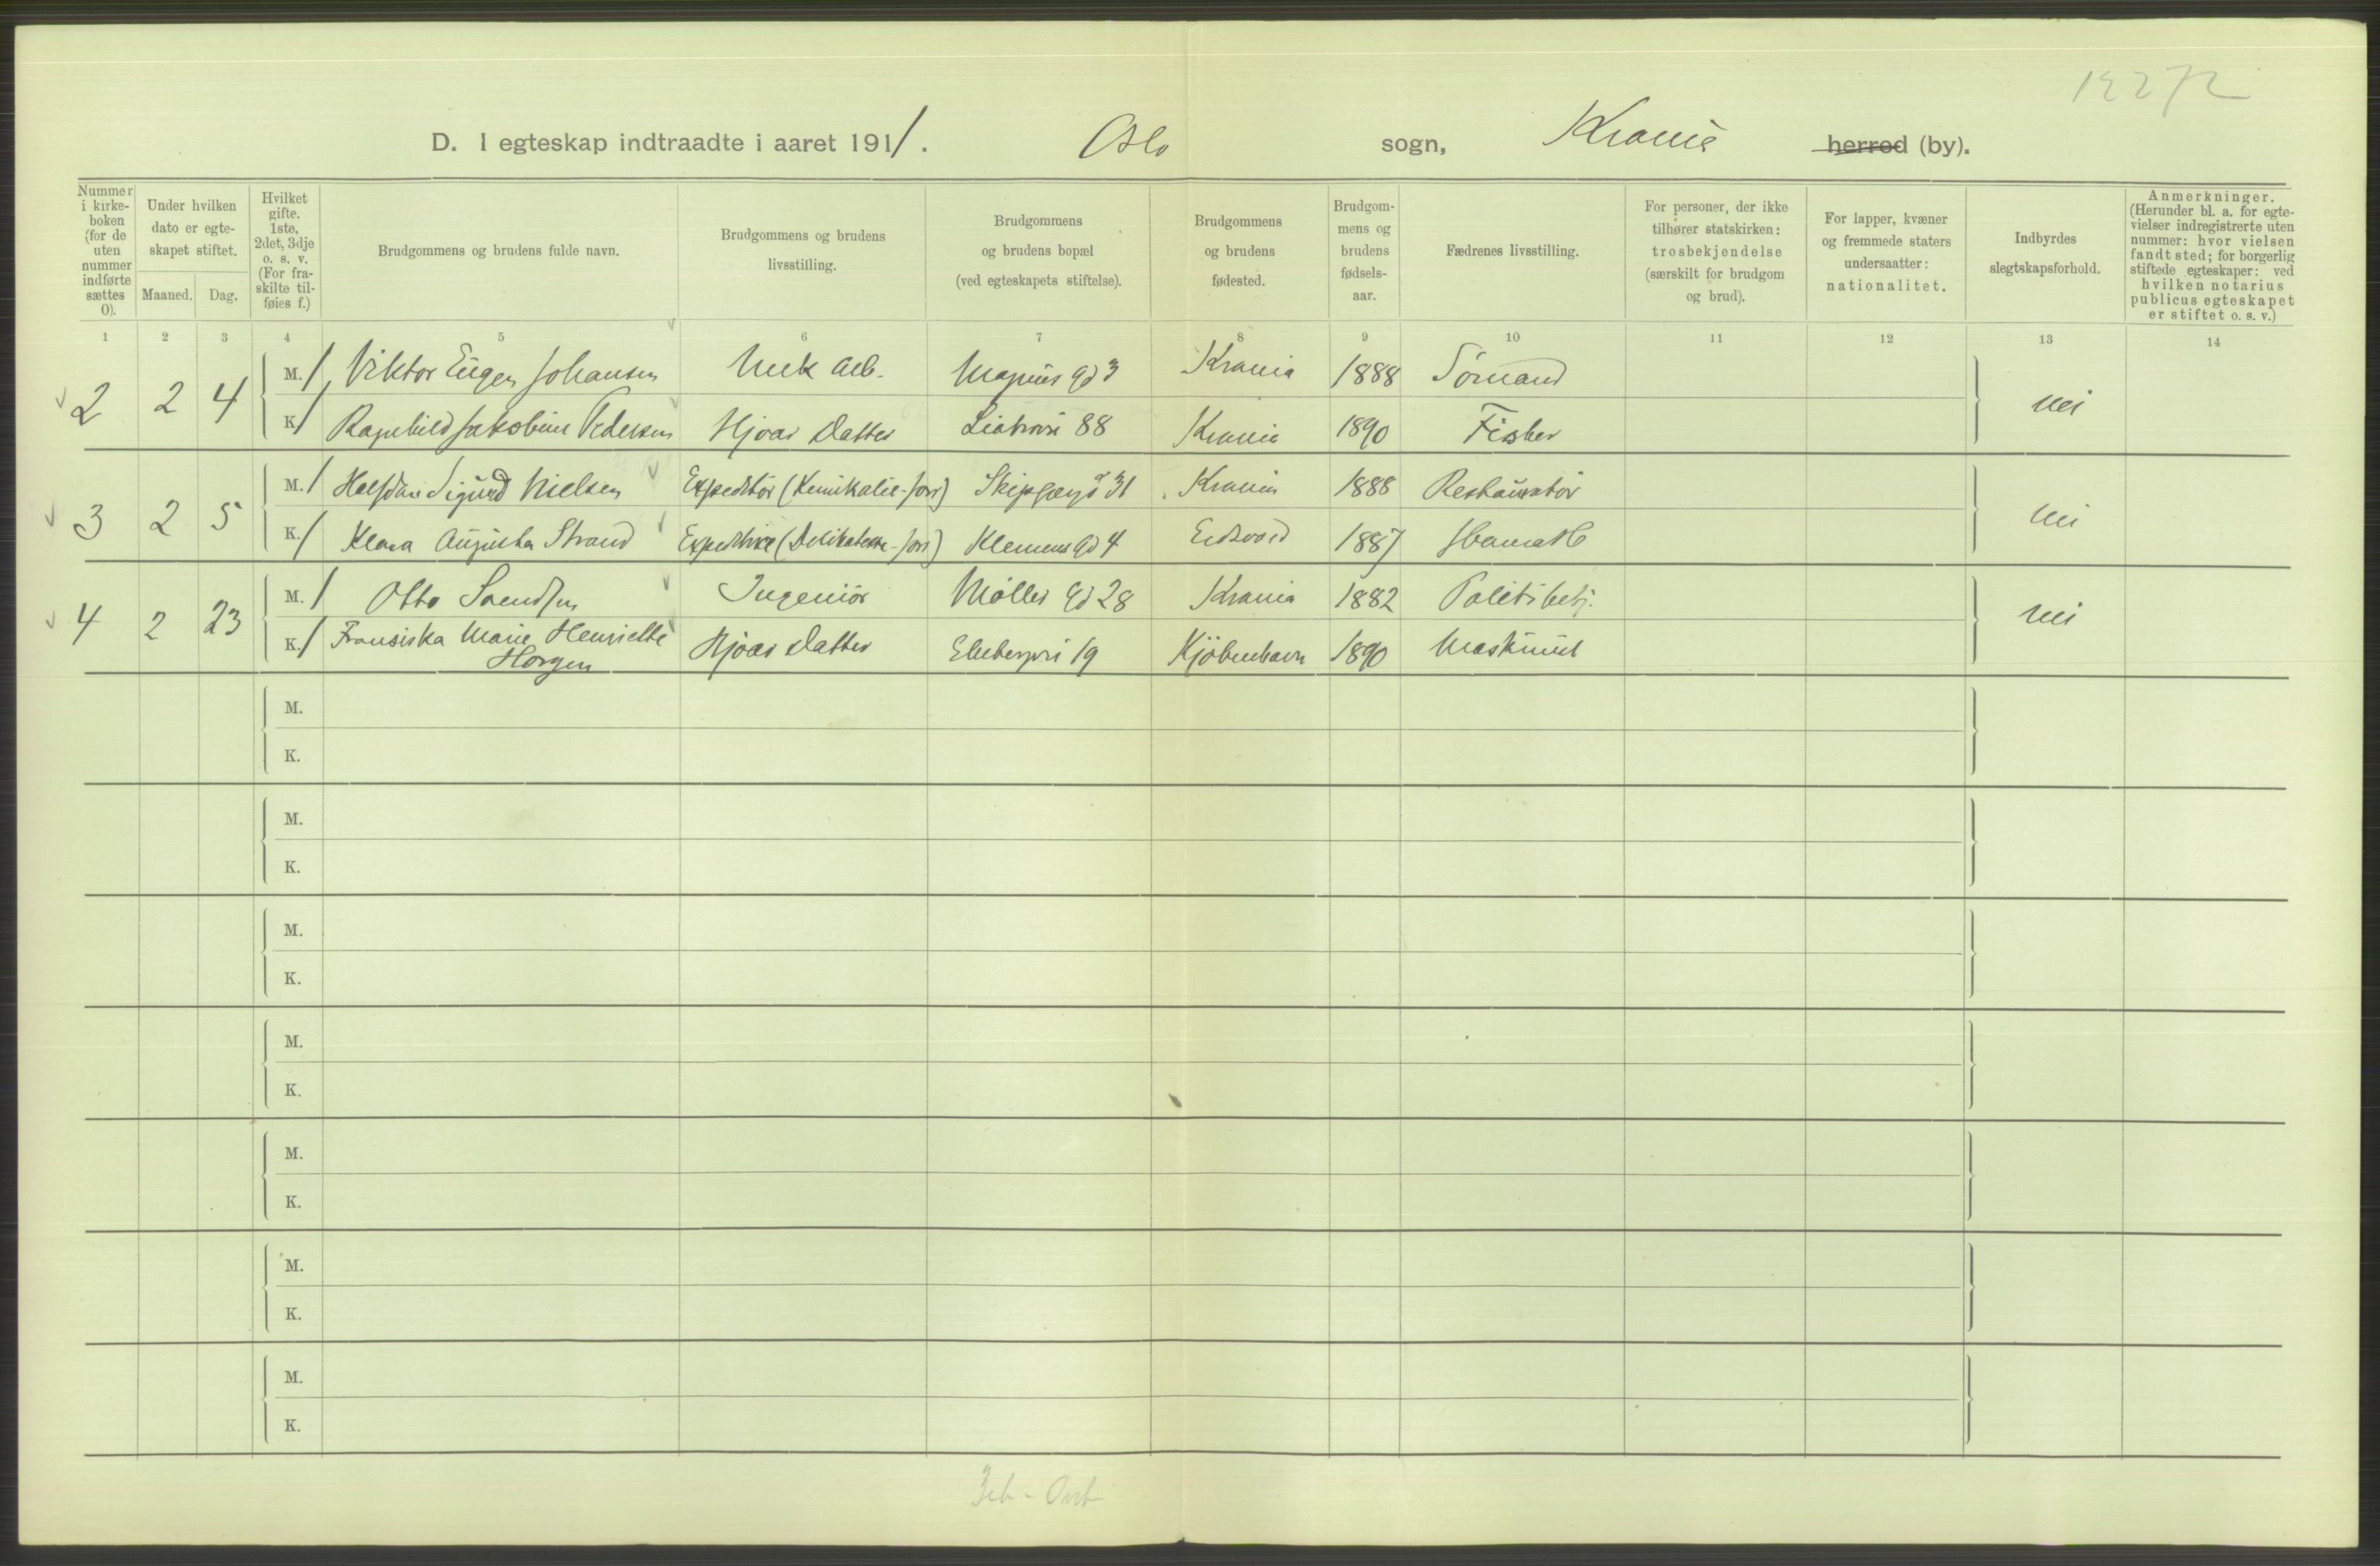 12272
D. I egteskap indtraadte i aaret 1911. Oslo sogn, Krania herred (by).
Nummer i kirkeboken (for de uten nummer indførte sættes 0).
Under hvilken dato er egteskapet stiftet.
Maaned. Dag.
Hvilket gifte. 1ste, 2det, 3dje o. s. v. (For fraskilte tilføies f.)
Brudgommens og brudens fulde navn.
Brudgommens og brudens livsstilling.
Brudgommens og brudens bopæl (ved egteskapets stiftelse).
Brudgommens og brudens fødested.
Brudgommens og brudens fødselsaar.
Fædrenes livsstilling.
For personer, der ikke tilhører statskirken: trosbekjendelse (særskilt for brudgom og brud).
For lapper, kvæner og fremmede staters undersaatter: nationalitet.
Indbyrdes slegtskapsforhold.
Anmerkninger. (Herunder bl. a. for egtevielser indregistrerte uten nummer: hvor vielsen fandt sted; for borgerlig stiftede egteskaper: ved hvilken notarius publicus egteskapet er stiftet o. s. v.)
1 2 3 4 5 6 7 8 9 10 11 12 13 14
2 2 4 M. / Viktor Eugen Johansen Mek arb. Magnus gd 3 Krania 1888 Sømand nei
K / Ragnhild Jakobine Pedersen Hjvær Datter 88 Krania 1890 Fisker
3 2 5 M. / Halfdan Sigurd Nielsen Expeditør (Kemikalie-forr) Skippergd 31 Krania 1888 Restauratør nei
K. / Klara Augusta Strand Expeditrice (Delikatesse-forr) Klemens gd 4 Eidsvold 1887
4 2 23 M. / Otto Svendsen Ingeniør Møller gd 28 Krania 1882 Politibetj. nei
K. / Fransiska Marie Henriette Horgen Hjvær Datter Ekebergvei 19 Kjøbenhavn 1890 Maskinist
M.
K.
M.
K.
M.
K.
M.
K.
M.
K.
M.
K.
M.
K.
Feb -